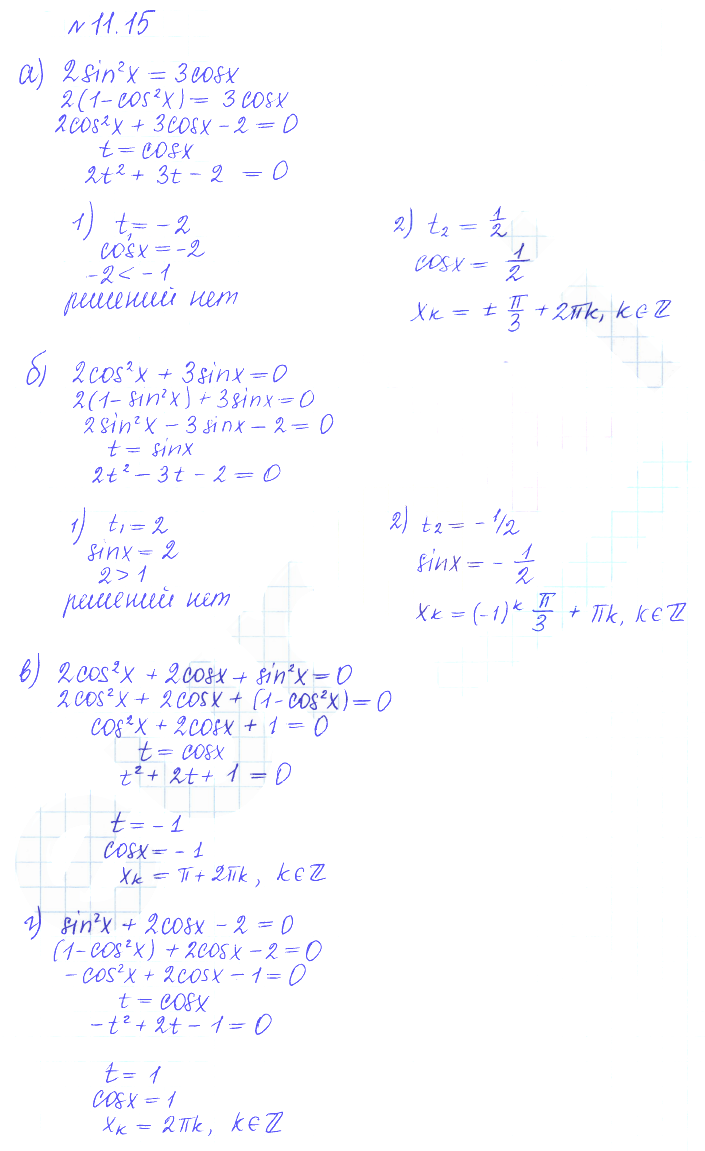 № 11.15
а) 2sin²x = 3cosx
2(1-cos²x) = 3cosx
2cos²x + 3cosx - 2 = 0
t = cosx
2t² + 3t - 2 = 0
1) t₁ = -2
cosx = -2
-2 < -1
решений нет
2) t₂ = 1/2
cosx = 1/2
xₖ = ± π/3 + 2πk, k∈ℤ
б) 2cos²x + 3sinx = 0
2(1-sin²x) + 3sinx = 0
2sin²x - 3sinx - 2 = 0
t = sinx
2t² - 3t - 2 = 0
1) t₁ = 2
sinx = 2
2 > 1
решений нет
2) t₂ = -1/2
sinx = - 1/2
xₖ = (-1)ᵏ π/3 + πk, k∈ℤ
в) 2cos²x + 2cosx + sin²x = 0
2cos²x + 2cosx + (1-cos²x) = 0
cos²x + 2cosx + 1 = 0
t = cosx
t² + 2t + 1 = 0
t = -1
cosx = -1
xₖ = π + 2πk, k∈ℤ
г) sin²x + 2cosx - 2 = 0
(1-cos²x) + 2cosx - 2 = 0
-cos²x + 2cosx - 1 = 0
t = cosx
-t² + 2t - 1 = 0
t = 1
cosx = 1
xₖ = 2πk, k∈ℤ